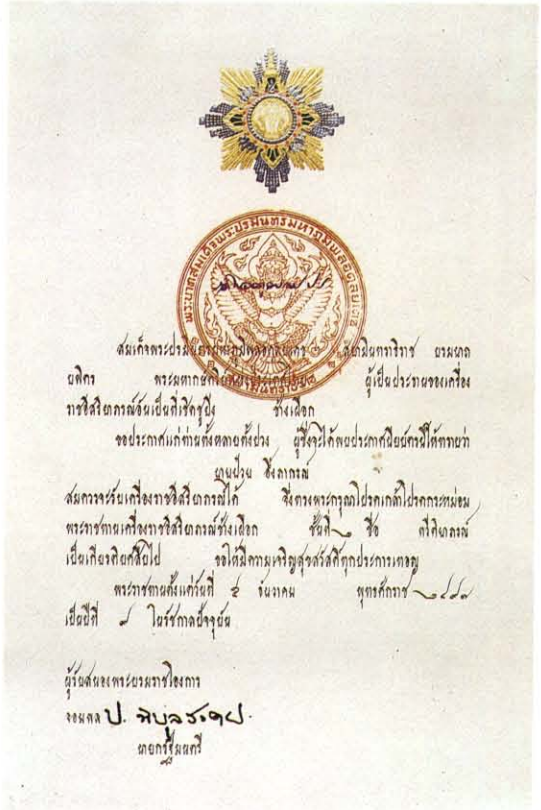 พระบาทสมเด็จพระปรมินทรมหาภูมิพลอดุลยเดช
สมเด็จพระปรมินทรมหาภูมิพลอดุลยเดช สยามินทราธิราช บรมนาถ
บพิตร พระมหากษัตริย์ ผู้เป็นประธานของเครื่อง
ราชอิสริยาภรณ์อันเป็นที่เชิดชูยิ่ง ช้างเผือก
ขอประกาศแก่ท่านทั้งหลายทั้งปวง ผู้ซึ่งจะได้พบประกาศนียบัตรนี้ให้ทราบว่า
นายป๋วย อึ๊งภากรณ์
สมควรจะรับเครื่องราชอิสริยาภรณ์ได้ จึงทรงพระกรุณาโปรดเกล้าโปรดกระหม่อม
พระราชทานเครื่องราชอิสริยาภรณ์ช้างเผือก ชั้นที่ ๓ ชื่อ ตริตาภรณ์
เป็นเกียรติยศสืบไป ขอให้มีความเจริญสุขสวัสดิ์ทุกประการเทอญ
พระราชทานตั้งแต่วันที่ ๕ ธันวาคม พุทธศักราช
เป็นปีที่ ในรัชกาลปัจจุบัน
ผู้รับสนองพระบรมราชโองการ
จอมพล ป. พิบูลสงคราม
นายกรัฐมนตรี